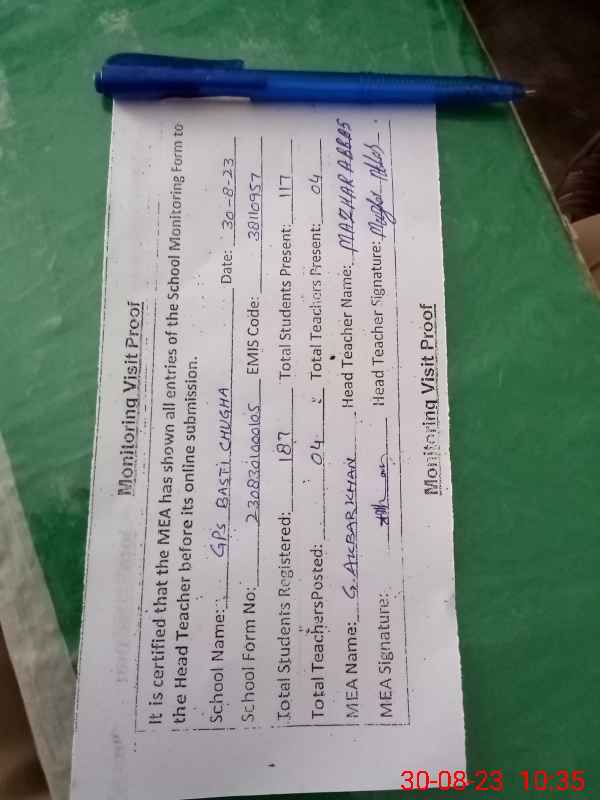 Monitoring Visit Proof
It is certified that the MEA has shown all entries of the School Monitoring Form to
the Head Teacher before its online submission.
School Name: GPS BASTI CHUGHA Date: 30-8-23
School Form No: 2308301000105 EMIS Code: 38110957
Total Students Registered: 187 Total Students Present: 117
Total TeachersPosted: 04 Total Teachers Present: 04
MEA Name: G. AKBAR KHAN Head Teacher Name: MAZHAR ABBAS
MEA Signature: Head Teacher Signature: Mazhar Abbas
Monitoring Visit Proof
30-08-23 10:35